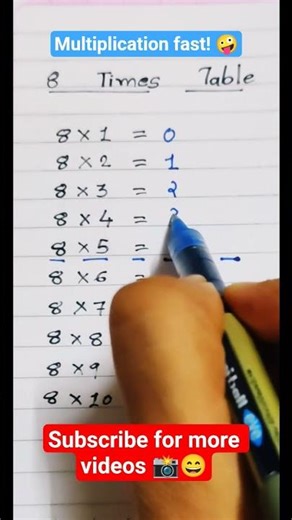 Multiplication fast! 🤪
8 Times Table
8 × 1 = 0
8 × 2 = 1
8 × 3 = 2
8 × 4 = 3
8 × 5 =
8 × 6
8 × 7
8 × 8
8 × 9
8 × 10
Subscribe for more
videos 📸😄